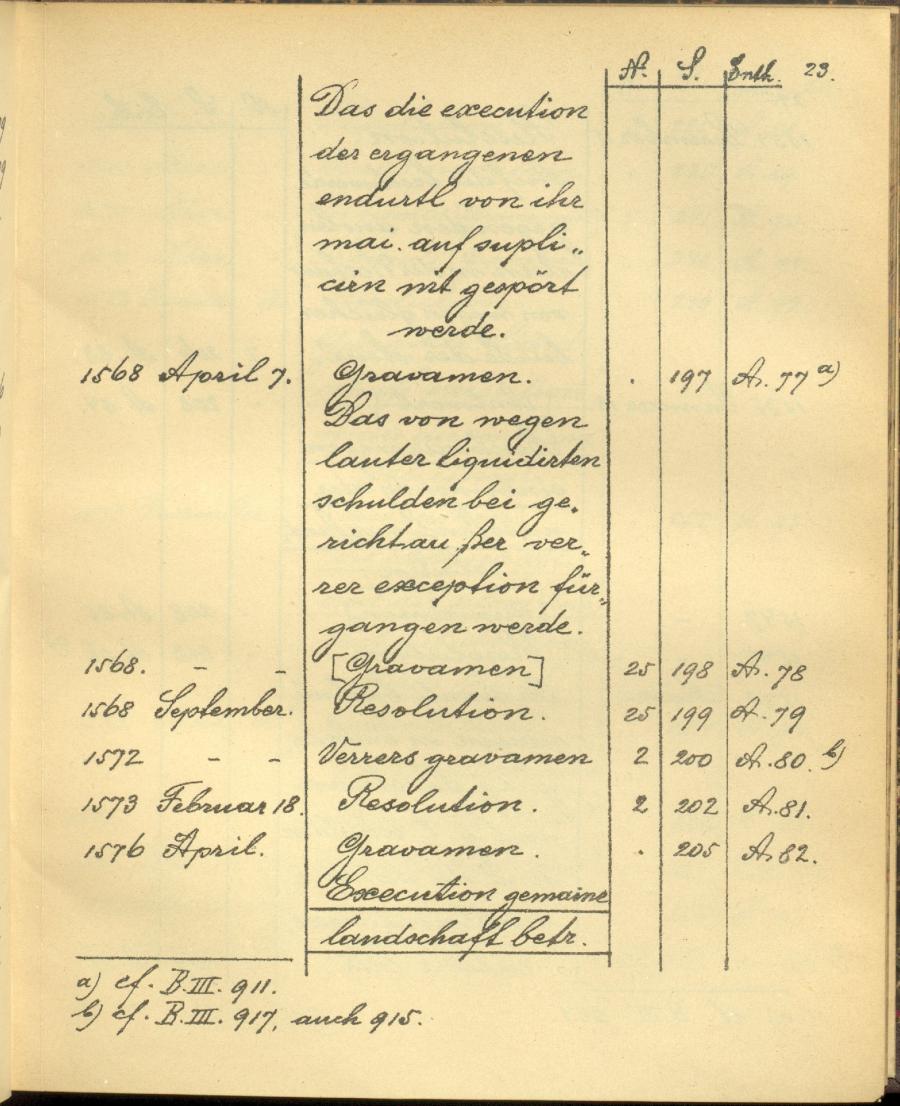 N. S. Enth. 23.
Das die execution
der ergangenen
endurtl von ihr
mai. auf supli„
cirn nit gespört
werde.
1568 April 7. Gravamen. . 197 A. 77 a)
Das von wegen
lauter liquidirten
schulden bei ge„
richt außer ver„
rer exception für„
gangen werde.
1568. - - [Gravamen] 25 198 A. 78
1568 September. Resolution. 25 199 A. 79
1572 - - Verrers gravamen 2 200 A. 80. b)
1573 Februar 18. Resolution. 2 202 A. 81.
1576 April. Gravamen. . 205 A. 82.
Execution gemaine
landschaft betr.
a) cf. B. III. 911.
b) cf. B. III. 917, auch 915.